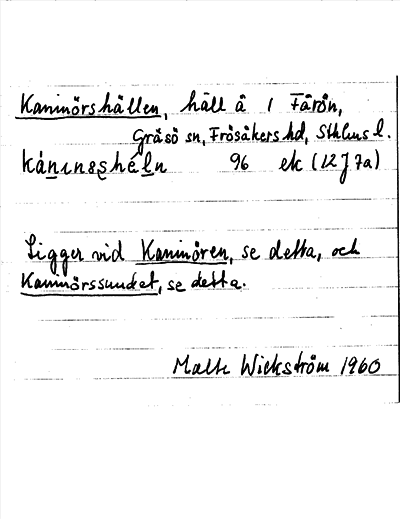 Kaninörshällen, häll å 1 Fårön,
Gräsö sn, Frösåkers hd, Sthlms l.
96 ek (12J7a)
Ligger vid Kaninören, se detta, och
Kaninörssundet, se detta.
Malte Wickström 1960